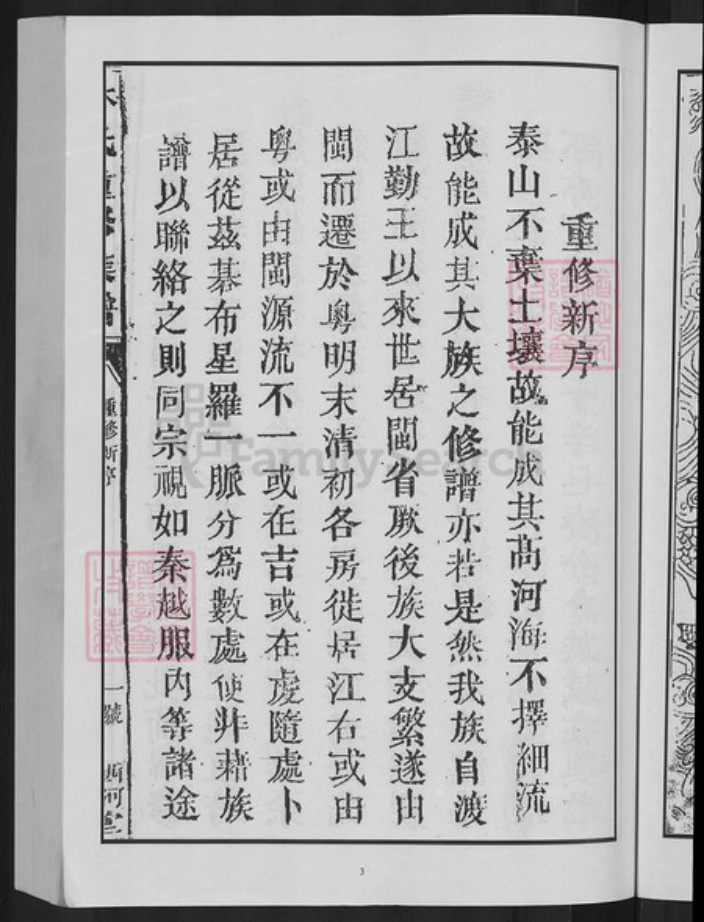 重修新序
泰山不棄土壤故能成其高河海不擇細流
故能成其大族之修譜亦若是然我族自渡
江勤王以來世居閩省厥後族大支繁遂由
閩而遷於粤明末清初各房徙居江右或由
粤或由閩源流不一或在吉或在虔隨處卜
居從茲碁布星羅一脈分爲數處使非藉族
譜以聯絡之則同宗視如秦越服內等諸途
重修新序
一號
西河堂
3
FamilySearch